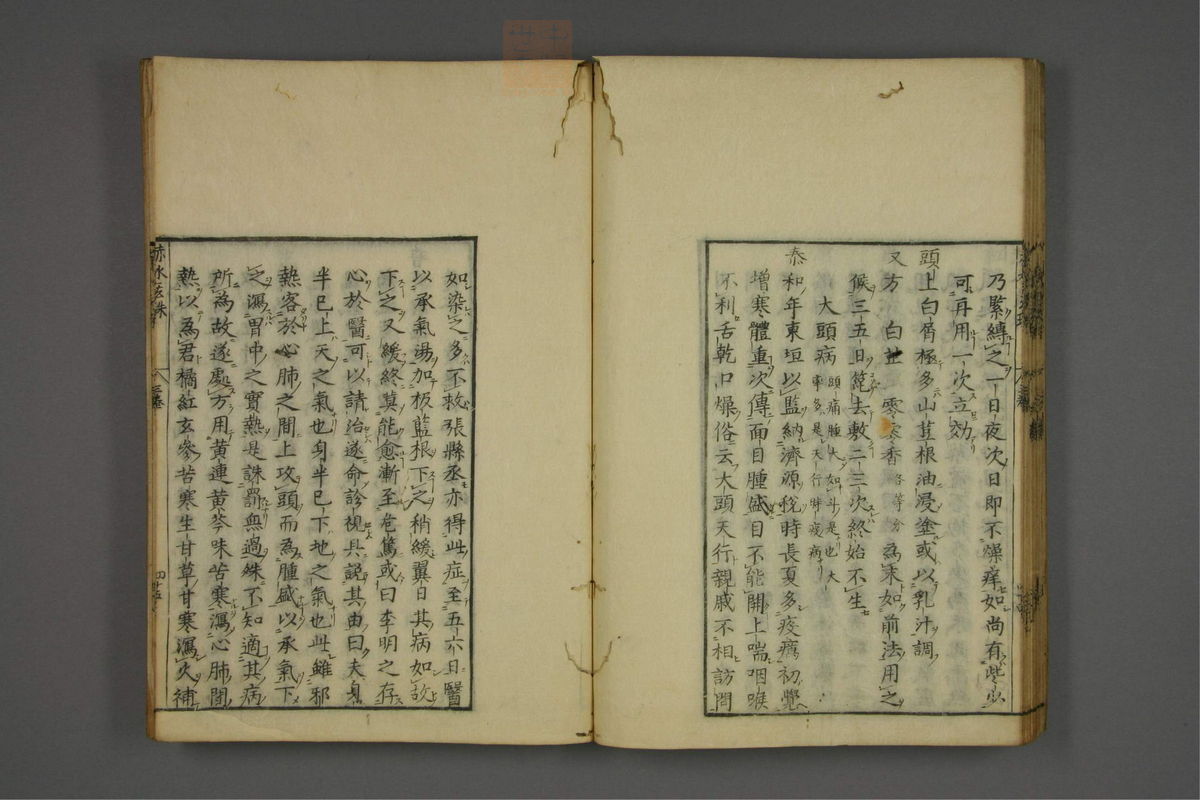 乃緊縛之一日夜次日即不燥痒如尚有些少
可再用一次立効
頭上白屑極多山豆根油浸塗或以乳汁調
又方 白芷 零零香各等分為末如前法用之
候三五日篦去敷二三次終始不生
大頭病頭痛腫大如斗是也大
率多是天行時疫病
泰和年東垣以監納濟源稅時長夏多疫癘初覺
增寒體重次傳面目腫盛目不能開上喘咽喉
不利舌乾口燥俗云大頭天行親戚不相訪問
如染之多不救張縣丞亦得此症至五六日醫
以承氣湯加板藍根下之稍緩翼日其病如故
下之又緩終莫能愈漸至危篤或曰李明之存
心於醫可以請治遂命診視具說其由曰夫身
半已上天之氣也身半已下地之氣也此雖邪
熱客於心肺之間上攻頭而為腫盛以承氣下
之瀉胃中之實熱是誅罰無過殊不知適其病
所為故遂處方用黃連黃芩味苦寒瀉心肺間
熱以為君橘紅玄參苦寒生甘草甘寒瀉火補
赤水玄珠
三卷
四十五